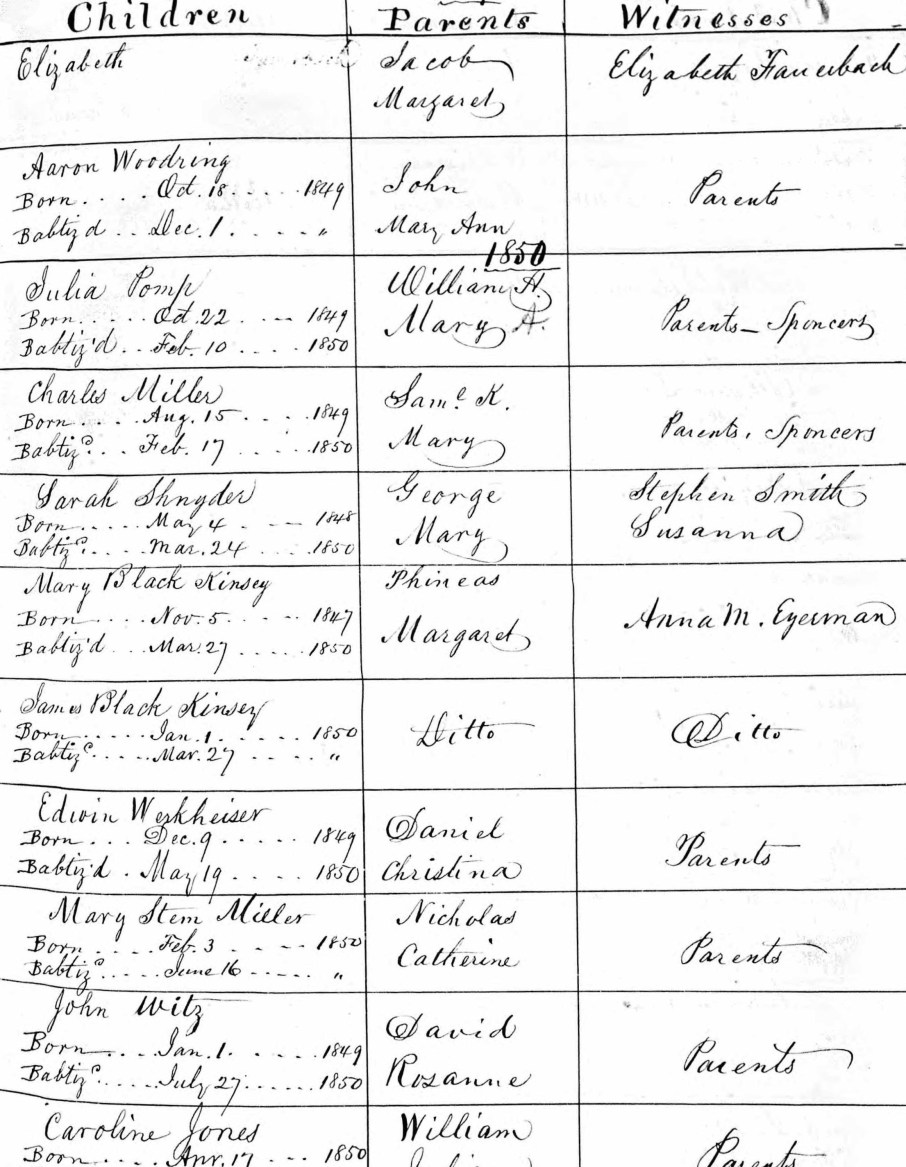 Children Parents Witnesses
Elizabeth Jacob Elizabeth Fauerbach
Margaret
Aaron Woodring
Born . . . Oct. 18 . . . . . 1849 John Parents
Babtiz'd . . Dec. 1 . . . . „ Mary Ann
1850
Julia Pomp William H.
Born . . . . . Oct. 22 . . -- 1849 Mary A. Parents - Sponcers
Babtiz'd . . Feb. 10 . . . . 1850
Charles Miller Saml. K.
Born . . . . Aug. 15 . . . . 1849 Mary Parents, Sponcers
Babtizd. . . Feb. 17 . . . . 1850
Sarah Shnyder George Stephen Smith
Born . . . . May 4 . . -- 1848 Mary Susanna
Babtizd. . . . Mar. 24 . . . . 1850
Mary Black Kinsey Phineas
Born . . . . Nov. 5 . . . -- 1847 Margaret Anna M. Eyerman
Babtiz'd . . . Mar. 27 . . . . 1850
James Black Kinsey
Born . . . . . Jan. 1 . . . . . 1850 Ditto Ditto
Babtizd. . . . Mar. 27 . . . . . „
Edwin Werkheiser Daniel
Born . . . Dec. 9 . . . . . 1849 Parents
Babtiz'd . May 19 . . . . 1850 Christina
Mary Stem Miller Nicholas
Born . . . . Feb. 3 . . -- 1850 Catherine Parents
Babtizd. . . . June 16 . . . . . „
John Witz David
Born . . . Jan. 1 . . . . . 1849 Parents
Babtizd. . . . . July 27 . . . . . 1850 Rosanne
Caroline Jones William
Born . . . . Apr. 17 . . . 1850 Parents